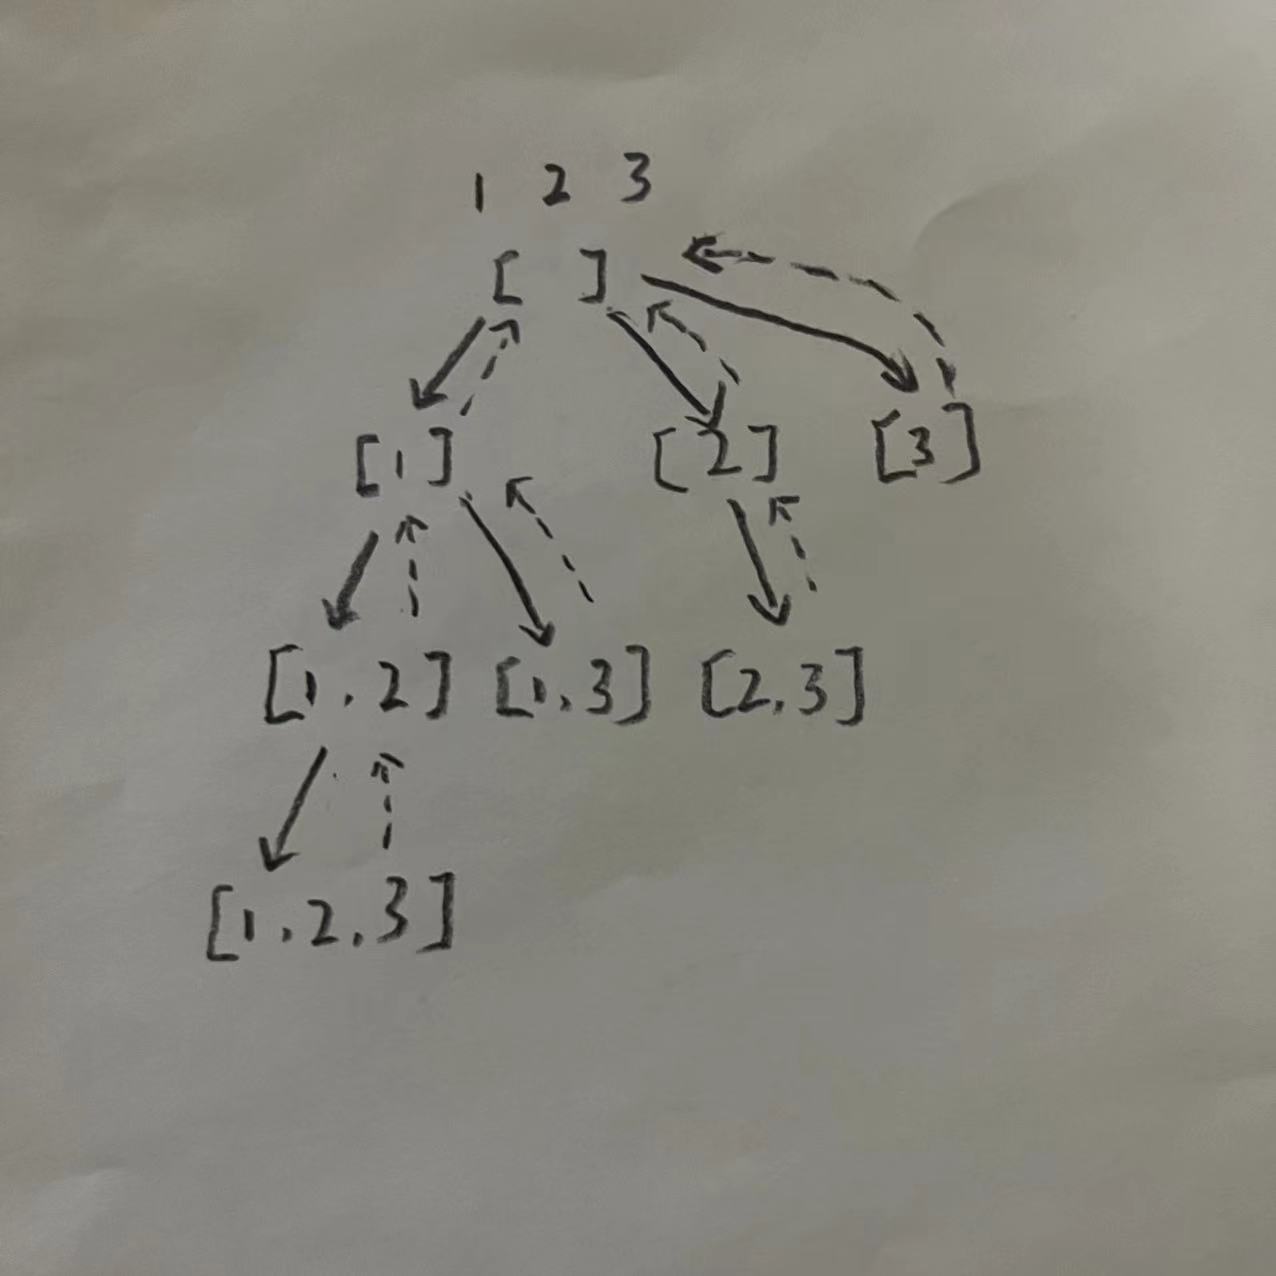 1 2 3
[ ]
[1] [2] [3]
[1,2] [1,3] [2,3]
[1,2,3]